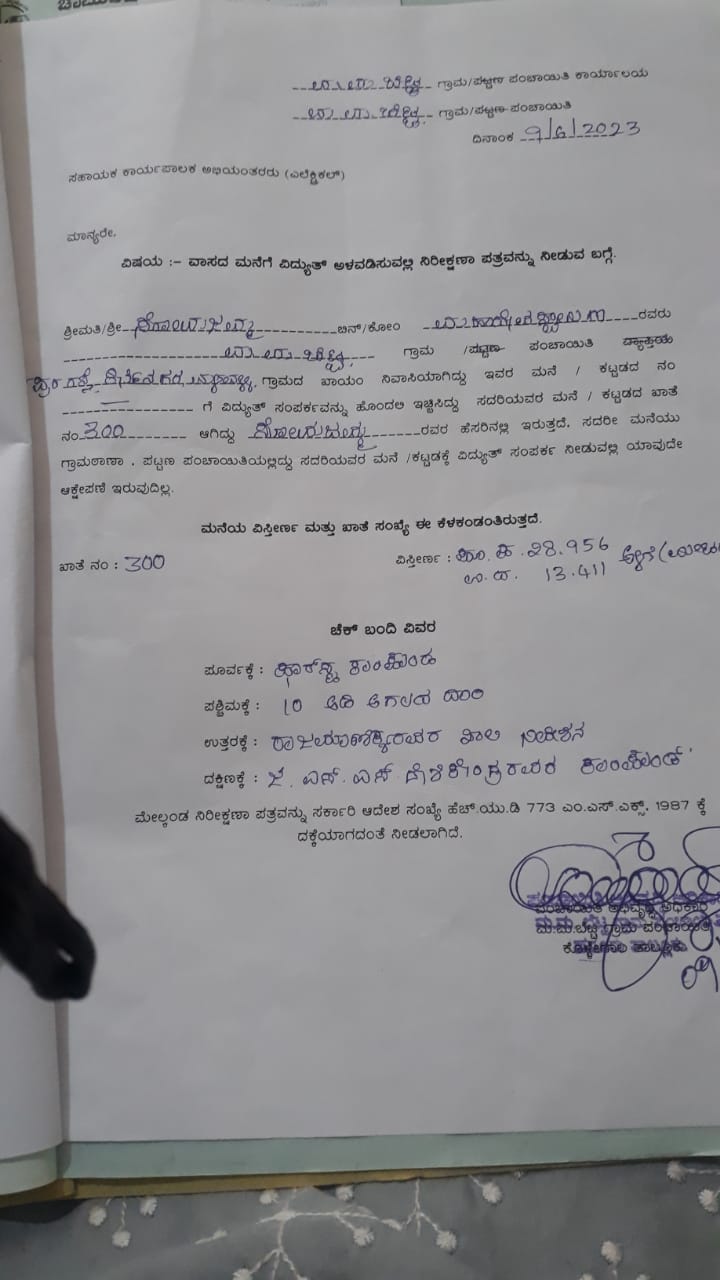 ಮ.ಮ.ಬೆಟ್ಟ ಗ್ರಾಮ/ಪಟ್ಟಣ ಪಂಚಾಯಿತಿ ಕಾರ್ಯಾಲಯ
ಮ.ಮ.ಬೆಟ್ಟ ಗ್ರಾಮ/ಪಟ್ಟಣ ಪಂಚಾಯಿತಿ
ದಿನಾಂಕ 9/6/2023
ಸಹಾಯಕ ಕಾರ್ಯಪಾಲಕ ಅಭಿಯಂತರರು (ಎಲೆಕ್ಟ್ರಿಕಲ್)
ಮಾನ್ಯರೇ,
ವಿಷಯ :- ವಾಸದ ಮನೆಗೆ ವಿದ್ಯುತ್ ಅಳವಡಿಸುವಲ್ಲಿ ನಿರೀಕ್ಷಣಾ ಪತ್ರವನ್ನು ನೀಡುವ ಬಗ್ಗೆ.
ಶ್ರೀಮತಿ/ಶ್ರೀ ಬಿನ್/ಕೋಂ ರವರು
ಮ.ಮ.ಬೆಟ್ಟ ಗ್ರಾಮ /ಪಟ್ಟಣ ಪಂಚಾಯಿತಿ ವ್ಯಾಪ್ತಿಯ
ಗ್ರಾಮದ ಖಾಯಂ ನಿವಾಸಿಯಾಗಿದ್ದು ಇವರ ಮನೆ / ಕಟ್ಟಡದ ನಂ
ಗೆ ವಿದ್ಯುತ್ ಸಂಪರ್ಕವನ್ನು ಹೊಂದಲು ಇಚ್ಛಿಸಿದ್ದು ಸದರಿಯವರ ಮನೆ / ಕಟ್ಟಡದ ಖಾತೆ
ನಂ 300 ಆಗಿದ್ದು ರವರ ಹೆಸರಿನಲ್ಲಿ ಇರುತ್ತದೆ. ಸದರೀ ಮನೆಯು
ಗ್ರಾಮಠಾಣಾ . ಪಟ್ಟಣ ಪಂಚಾಯಿತಿಯಲ್ಲಿದ್ದು ಸದರಿಯವರ ಮನೆ /ಕಟ್ಟಡಕ್ಕೆ ವಿದ್ಯುತ್ ಸಂಪರ್ಕ ನೀಡುವಲ್ಲಿ ಯಾವುದೇ
ಆಕ್ಷೇಪಣೆ ಇರುವುದಿಲ್ಲ.
ಮನೆಯ ವಿಸ್ತೀರ್ಣ ಮತ್ತು ಖಾತೆ ಸಂಖ್ಯೆ ಈ ಕೆಳಕಂಡಂತಿರುತ್ತದೆ.
ಖಾತೆ ನಂ : 300 ವಿಸ್ತೀರ್ಣ : ಪೂ.ಪ. 28.956
ಉ.ದ. 13.411
ಚೆಕ್ ಬಂದಿ ವಿವರ
ಪೂರ್ವಕ್ಕೆ : ಕಾಂಪೌಂಡು
ಪಶ್ಚಿಮಕ್ಕೆ : 10 ಅಡಿ ಅಗಲದ ದಾರಿ
ಉತ್ತರಕ್ಕೆ : ಖಾಲಿ ನಿವೇಶನ
ದಕ್ಷಿಣಕ್ಕೆ : ಕಾಂಪೌಂಡ್
ಮೇಲ್ಕಂಡ ನಿರೀಕ್ಷಣಾ ಪತ್ರವನ್ನು ಸರ್ಕಾರಿ ಆದೇಶ ಸಂಖ್ಯೆ ಹೆಚ್.ಯು.ಡಿ 773 ಎಂ.ಎಸ್.ಎಕ್ಸ್. 1987 ಕ್ಕೆ
ದಕ್ಕೆಯಾಗದಂತೆ ನೀಡಲಾಗಿದೆ.
ಪಂಚಾಯಿತಿ ಅಭಿವೃದ್ಧಿ ಅಧಿಕಾರಿ
ಮ.ಮ.ಬೆಟ್ಟ ಗ್ರಾಮ ಪಂಚಾಯಿತಿ
ಕೊಳ್ಳೇಗಾಲ ತಾಲ್ಲೂಕು